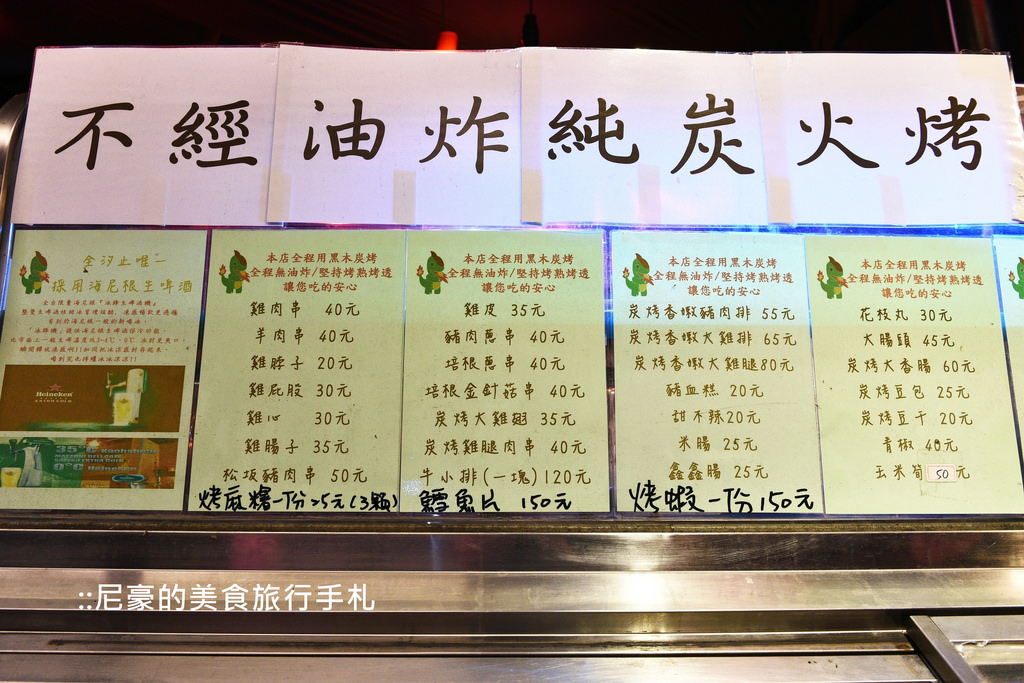 不經油炸純炭火烤
全汐止唯一
採用海尼根生啤酒
Heineken
35°C Kaohsiung
0°C Heineken
本店全程用黑木炭烤
全程無油炸/堅持烤熟烤透
讓您吃的安心
雞肉串 40元
羊肉串 40元
雞脖子 20元
雞屁股 30元
雞心 30元
雞腸子 35元
松坂豬肉串 50元
烤麻糬一份25元(3顆)
本店全程用黑木炭烤
全程無油炸/堅持烤熟烤透
讓您吃的安心
雞皮 35元
豬肉蔥串 40元
培根蔥串 40元
培根金針菇串 40元
炭烤大雞翅 35元
炭烤雞腿肉串 40元
牛小排(一塊)120元
鱈魚片 150元
本店全程用黑木炭烤
全程無油炸/堅持烤熟烤透
讓您吃的安心
炭烤香嫩豬肉排 55元
炭烤香嫩大雞排 65元
炭烤香嫩大雞腿80元
豬血糕 20元
甜不辣20元
米腸 25元
鑫鑫腸 25元
烤蝦一份150元
本店全程用黑木炭烤
全程無油炸/堅持烤熟烤透
讓您吃的安心
花枝丸 30元
大腸頭 45元
炭烤大香腸 60元
炭烤豆包 25元
炭烤豆干 20元
青椒 40元
玉米筍 50元
::尼豪的美食旅行手札